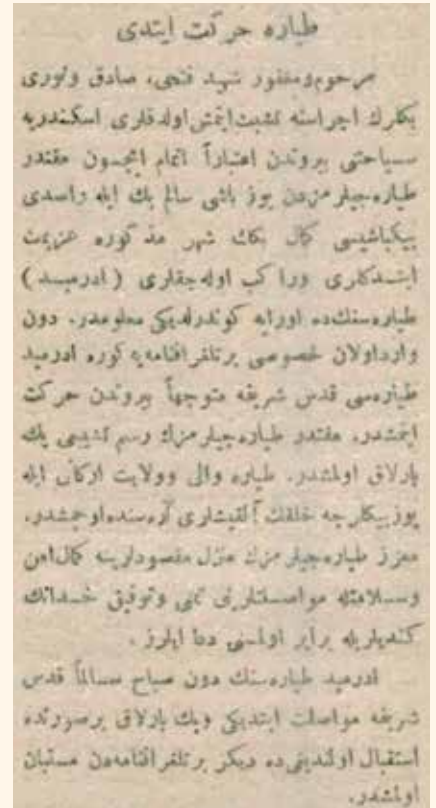 طياره حركت ايتدى
مرحوم ومغفور شهيد فتحى، صادق ونورى
بكلرك اجراسنه تشبث ايتمش اولدقلرى اسكندريه
سياحتى بيروتدن اعتباراً اتمام ايتجسون مقتدر
طياره جيلرمزدن يوز باشى سالم بك ايله راصدى
بيكباشيسى كمال بكك شهر مذكوره عزيمت
ايتدكلرى وراكب اوله جقلرى ( ادرميد )
طياره سنك ده اورايه كوندرلديكى معلومدر. دون
وارد اولان خصوصى بر تلغرافنامه يه كوره ادرميد
طياره سى قدس شريفه متوجهاً بيروتدن حركت
ايتمشدر. مقتدر طياره جيلرمزك رسم تشييعى پك
پارلاق اولمشدر. طياره والى وولايت اركانى ايله
يوز بيكلرجه خلقك آلقيشلرى آره سنده اوچمشدر.
معزز طياره جيلرمزك منزل مقصودلرينه كمال امن
وسلامتله مواصلتلرينى تمنى وتوفيق خدانك
كنديلريله برابر اولمسنى دعا ايلرز .
ادرميد طياره سنك دون صباح سالماً قدس
شريفه مواصلت ايتديكى وپك پارلاق برصورتده
استقبال اولنديغى ده ديكر بر تلغرافنامه دن مستبان
اولمشدر.